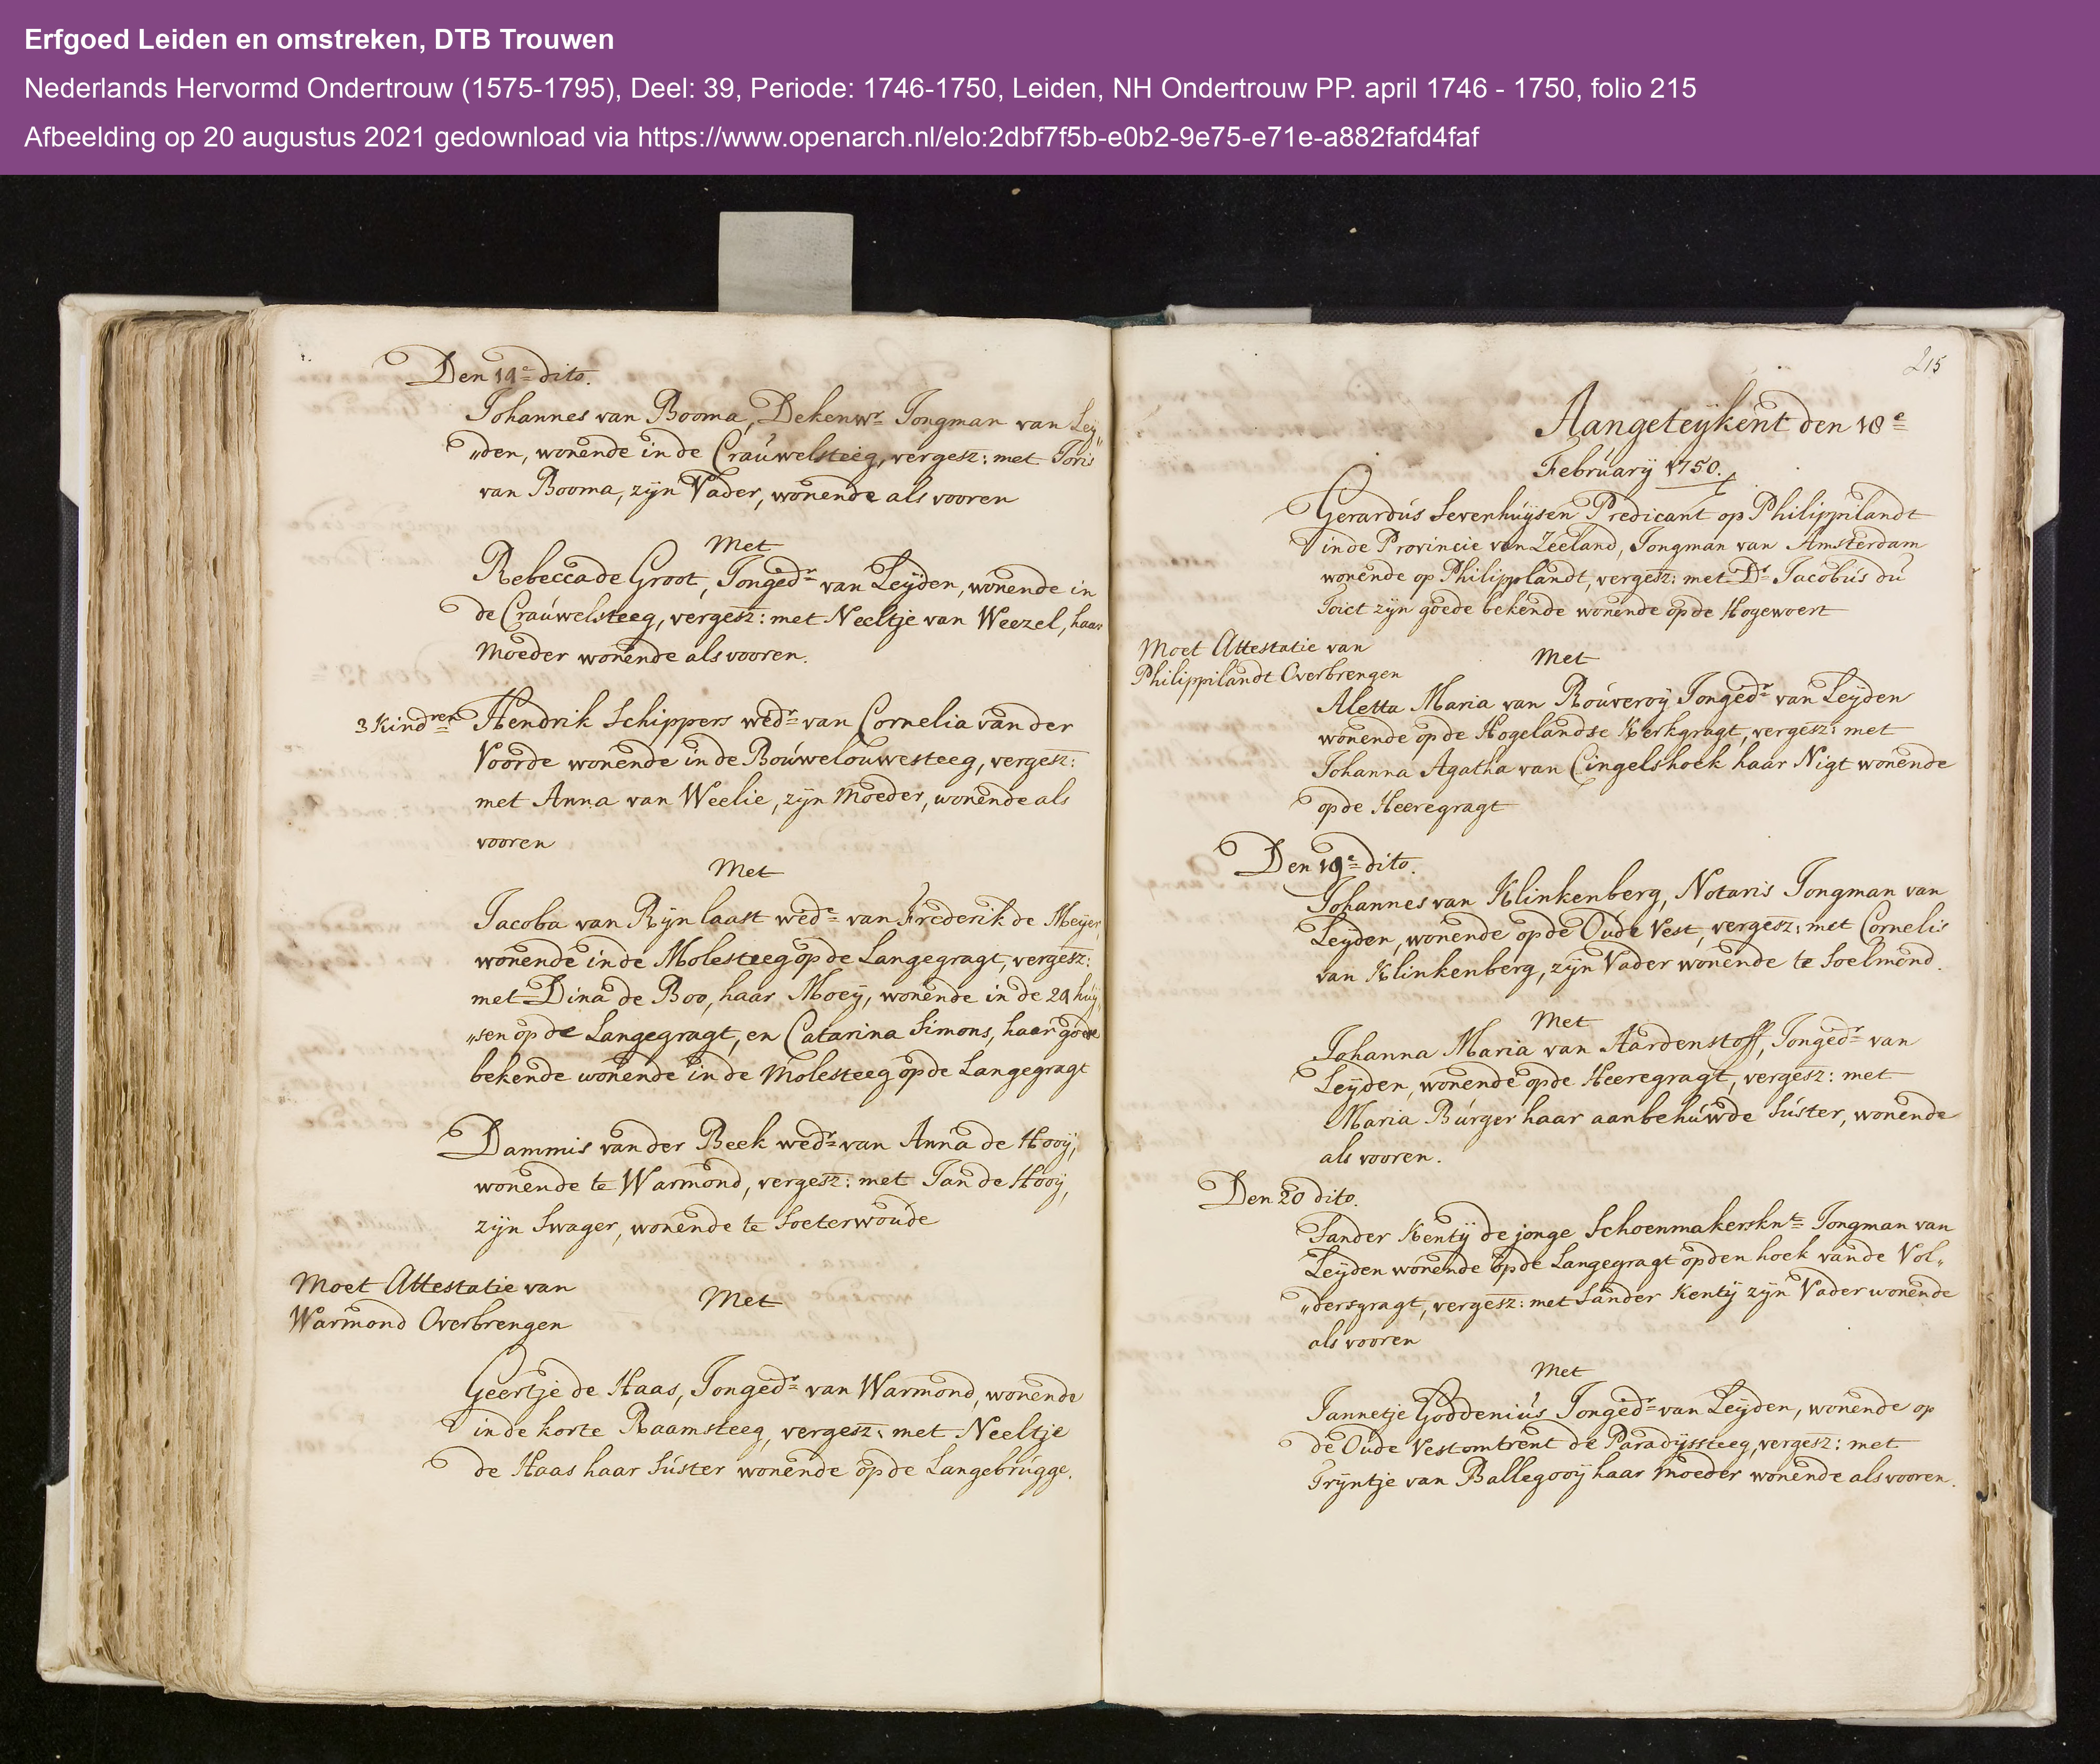 Erfgoed Leiden en omstreken, DTB Trouwen
Nederlands Hervormd Ondertrouw (1575-1795), Deel: 39, Periode: 1746-1750, Leiden, NH Ondertrouw PP. april 1746 - 1750, folio 215
Afbeelding op 20 augustus 2021 gedownload via https://www.openarch.nl/elo:2dbf7f5b-e0b2-9e75-e71e-a882fafd4faf
Den 19e dito.
Johannes van Booma, Dekenwr Jongman van Leÿ„
„den, wonende in de Craúwelsteeg, vergesz: met Joris
van Booma, zÿn Vader, wonende als vooren
Met
Rebecca de Groot, Jongedr van Leÿden, wonende in
de Craúwelsteeg, vergesz: met Neeltje van Weezel, haar
Moeder wonende als vooren.
3 Kindren
Hendrik Schippers wedr van Cornelia van der
Voorde wonende in de Boúwelouwesteeg, vergesz:
met Anna van Weelie, zÿn Moeder, wonende als
vooren
Met
Jacoba van Rÿn laast wede van Frederik de Meÿer,
wonende in de Molesteeg op de Langegragt, vergesz:
met Dina de Boo, haar Moeÿ, wonende in de 29 húÿ„
„sen op de Langegragt, en Catarina Simons, haar goede
bekende wonende in de Molesteeg op de Langegragt
Dammis van der Beek wedr van Anna de Hooÿ,
wonende te Warmond, vergesz: met Jan de Hooÿ,
zÿn Swager, wonende te Soeterwoude
Moet Attestatie van
Warmond Overbrengen
Met
Geertje de Haas, Jongedr van Warmond, wonende
in de korte Raamsteeg, vergesz: met Neeltje
de Haas haar Súster wonende op de Langebrúgge.
215
Aangeteÿkent den 18e
Februarÿ 1750.
Gerardús Sevenhúÿsen Predicant op Philippilandt
in de Provincie van Zeeland, Jongman van Amsterdam
wonende op Philipplandt, vergesz: met Dr Jacobús dú
Toict zÿn goede bekende wonende op de Hogewoert
Moet Attestatie van
Philippilandt Overbrengen
Met
Aletta Maria van Roúveroÿ Jongedr van Leÿden
wonende op de Hogelandse Kerkgragt, vergesz: met
Johanna Agatha van Cingelshoek haar Nigt wonende
op de Heeregragt
Den 19e dito.
Johannes van Klinkenberg, Notaris Jongman van
Leÿden, wonende op de Oude Vest, vergesz: met Cornelis
van Klinkenberg, zÿn Vader wonende te Soelmond.
Met
Johanna Maria van Aardenstoff, Jongedr van
Leÿden, wonende op de Heeregragt, vergesz: met
Maria Búrger haar aanbehúwde Súster, wonende
als vooren.
Den 20 dito.
Sander Kentÿ de jonge Schoenmakersknt Jongman van
Leÿden wonende op de Langegragt op den hoek van de Vol„
„dersgragt, vergesz: met Sander Kentÿ zÿn Vader wonende
als vooren
Met
Jannetje Goddeniús Jongedr van Leÿden, wonende op
de Oude Vest omtrent de Paradÿssteeg, vergesz: met
Trÿntje van Ballegooÿ haar Moeder wonende als vooren.